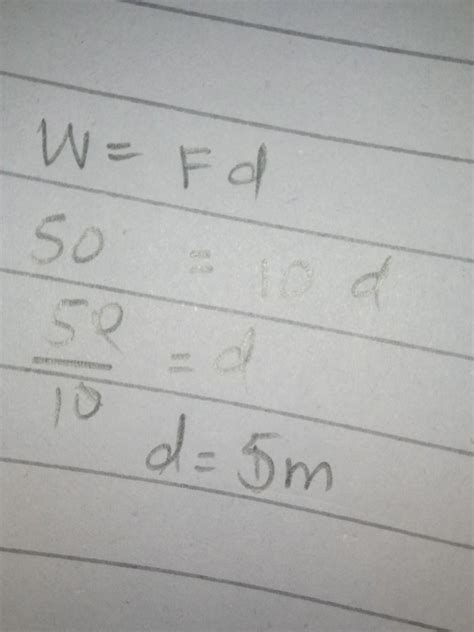 W = Fd
50 = 10 d
50/10 = d
d = 5m